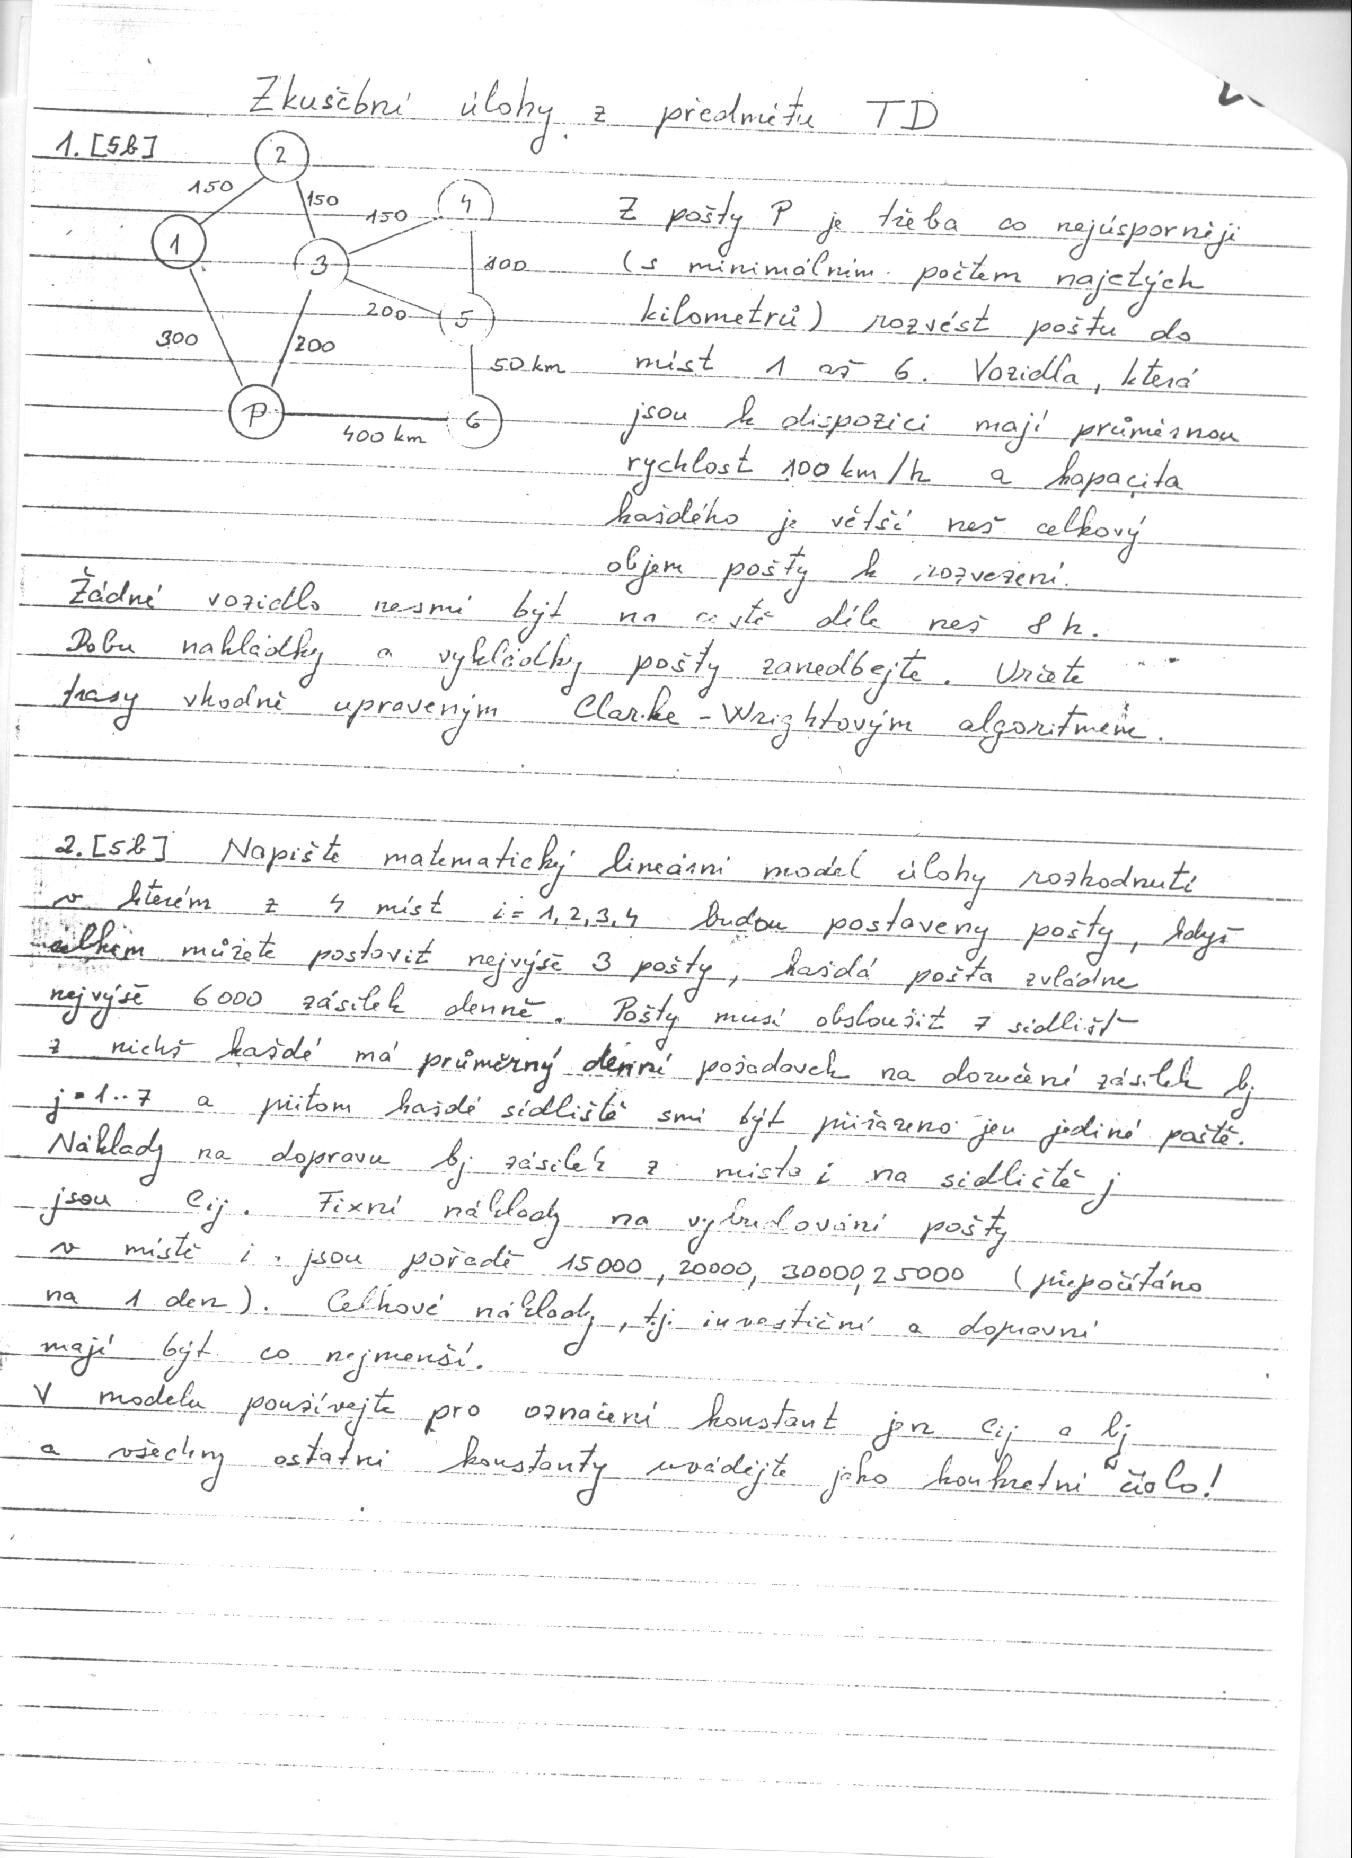 Zkušební úlohy z předmětu TD
1. [5b]
2
150
150
150
4
1
3
100
200
5
300
200
50 km
P
6
400 km
Z pošty P je třeba co nejúsporněji
(s minimálním počtem najetých
kilometrů) rozvést poštu do
míst 1 až 6. Vozidla, která
jsou k dispozici mají průměrnou
rychlost 100 km/h a kapacita
každého je větší než celkový
objem pošty k rozvezení.
Žádné vozidlo nesmí být na cestě déle než 8 h.
Dobu nakládky a vykládky pošty zanedbejte. Určete
trasy vhodně upraveným Clarke-Wrightovým algoritmem.
2. [5b] Napište matematický lineární model úlohy rozhodnutí
v kterém z 4 míst i = 1,2,3,4 budou postaveny pošty, když
celkem můžete postavit nejvýše 3 pošty, každá pošta zvládne
nejvýše 6000 zásilek denně. Pošty musí obsloužit 7 sídlišť
z nichž každé má průměrný denní požadavek na doručení zásilek bj
j = 1..7 a přitom každé sídliště smí být přiřazeno jen jediné poště.
Náklady na dopravu bj zásilek z místa i na sídliště j
jsou cij. Fixní náklady na vybudování pošty
v místě i jsou pořadě 15000, 20000, 30000, 25000 (přepočítáno
na 1 den). Celkové náklady, tj. investiční a dopravní
mají být co nejmenší.
V modelu používejte pro označení konstant jen cij a bj
a všechny ostatní konstanty uvádějte jako konkrétní číslo!